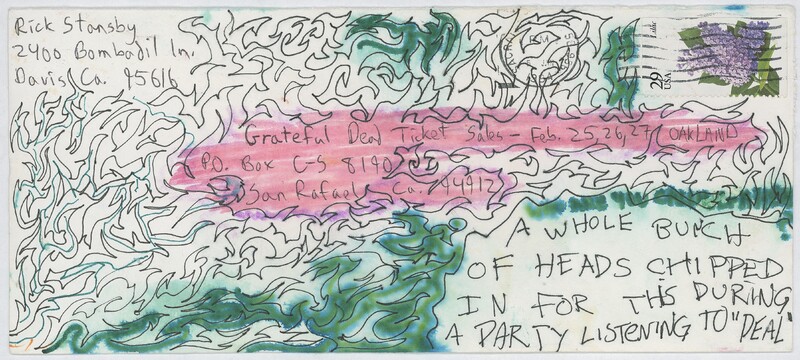 Rick Stansby
2400 Bombadil ln.
Davis Ca. 95616
lilac
29
USA
Grateful Dead Ticket Sales - Feb. 25, 26, 27 (OAKLAND)
P.O. Box C-S 8190
San Rafael, Ca. 94912
A WHOLE BUNCH
OF HEADS CHIPPED
IN FOR THS DURING
A PARTY LISTENING TO "DEAL"